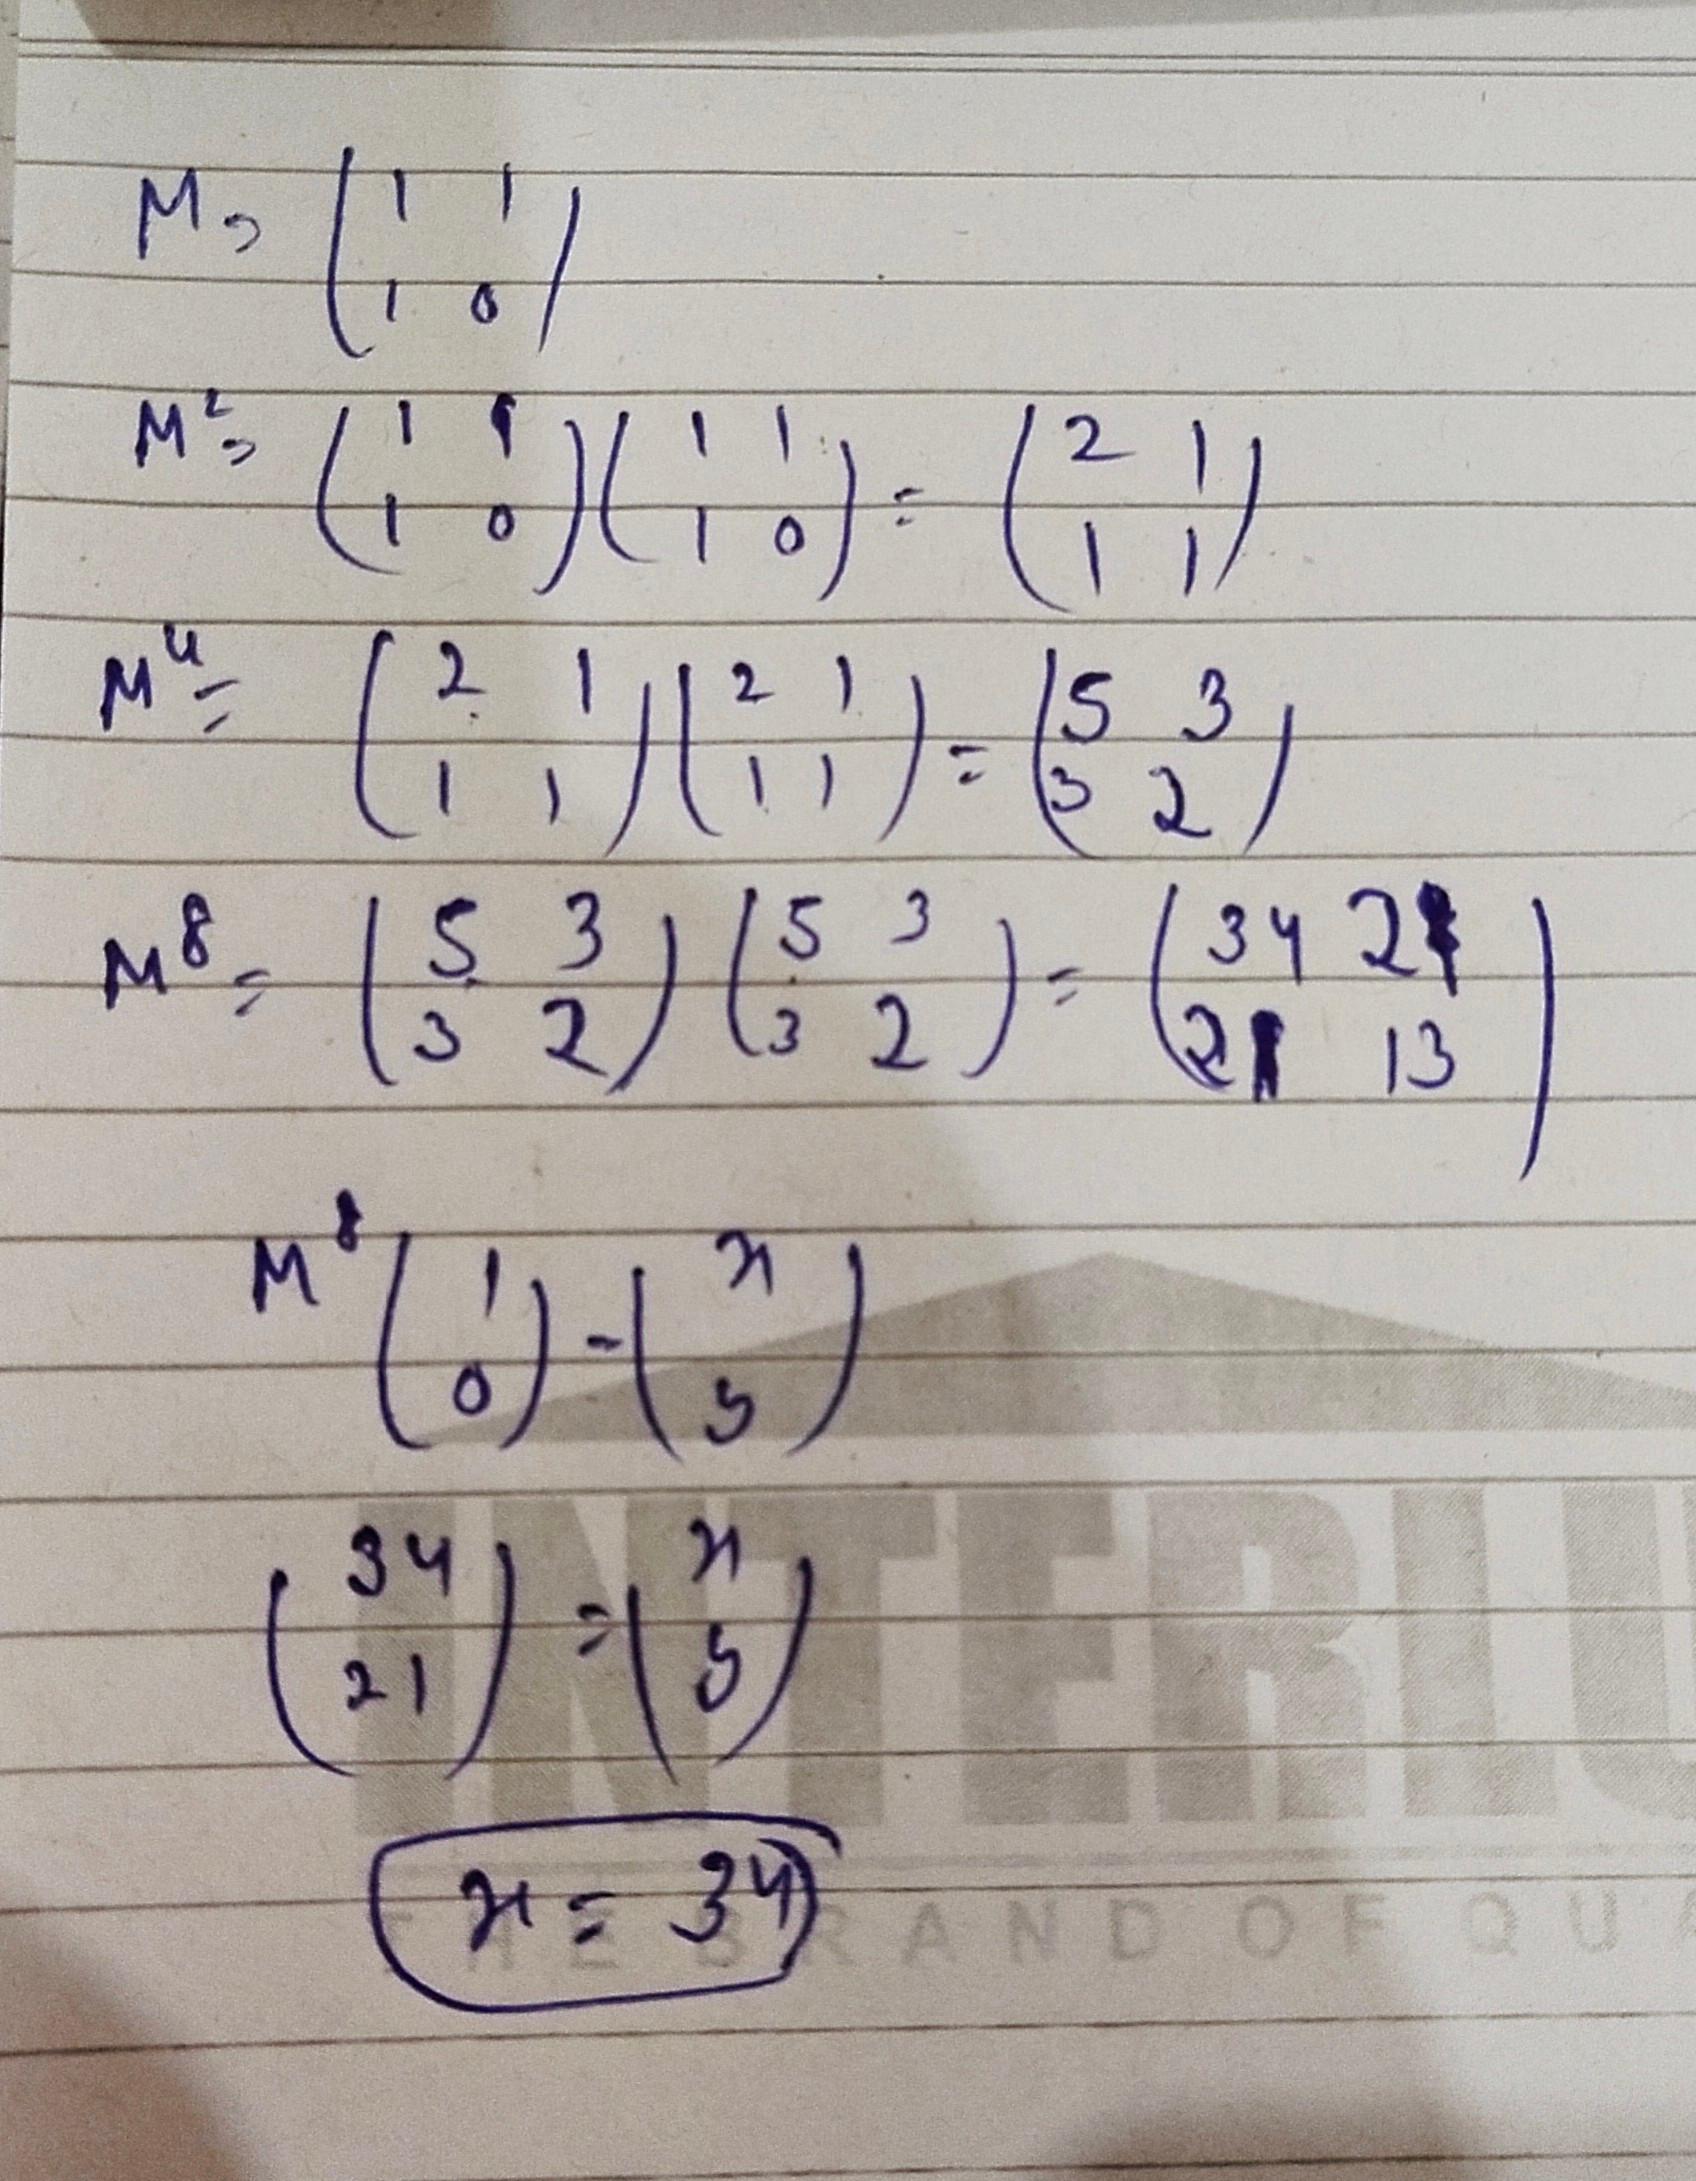 M = ( 1 1
1 0 )
M² = ( 1 1
1 0 ) ( 1 1
1 0 ) = ( 2 1
1 1 )
M⁴ = ( 2 1
1 1 ) ( 2 1
1 1 ) = ( 5 3
3 2 )
M⁸ = ( 5 3
3 2 ) ( 5 3
3 2 ) = ( 34 21
21 13 )
M⁸ ( 1
0 ) = ( x
y )
( 34
21 ) = ( x
y )
x = 34
INTERLU
THE BRAND OF QUA